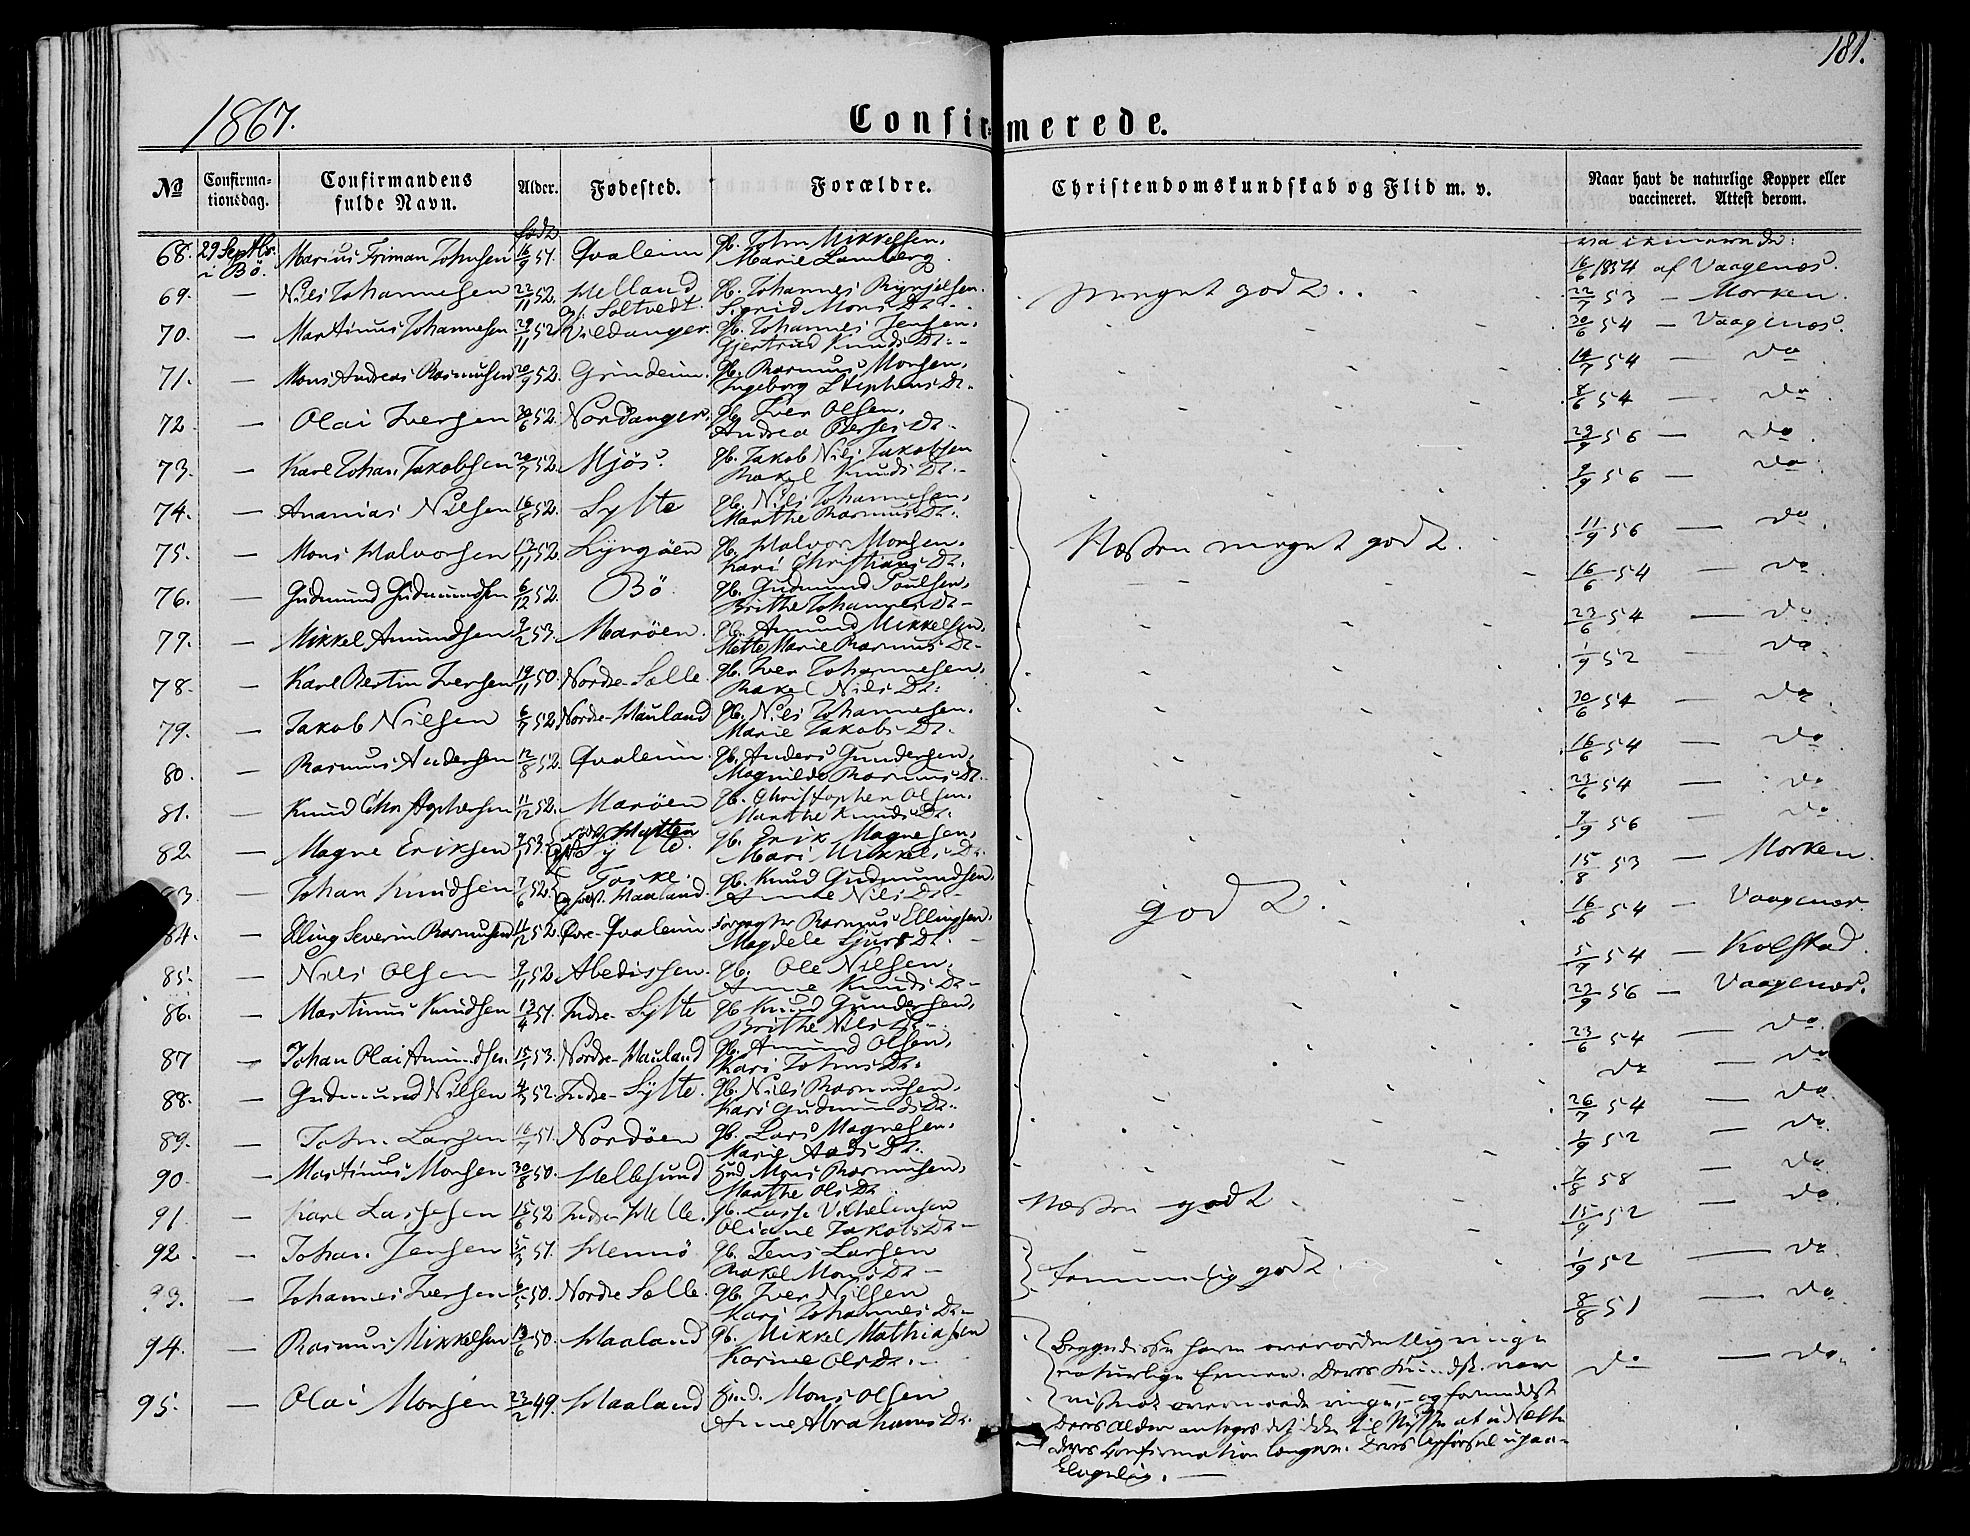 181.
1867.
Confirmerede.
No Confirmationsdag. Confirmandens fulde Navn. Alder. Fødested. Forældre. Christendomskundskab og Flid m. v. Naar havt de naturlige Kopper eller vaccineret. Attest derom.
født
68. 29 Septbr. i Bö. Marius Friman Johnsen 16/9 51. Qvaleim Gb. John Mikkelsen, Marie Lamberg. 16/6 1854 af Vaagenæs.
69. — Nils Johannesen 22/11 52. Helland Gb. Johannes Brynjelsen Sigrid Mons Dr. meget godt. 22/7 53 — Morken.
70. — Martinus Johannesen 29/11 52 Vildanger. Gb. Johannes Jensen, Gjertrud Knuds Dr. 30/6 54 — Vaagenæs.
71. — Mons Andreas Rasmussen 20/9 52. Grindeim. Gb. Rasmus Monsen, Ingeborg Stephens Dr. 14/7 54 — do
72. — Olai Iversen 30/6 52. Nordanger. Gb. Iver Olsen, Andrea Peders Dr. 8/6 54 — do
73. — Karl Johan Jakobsen 20/7 52. Mjös. Gb. Jakob Nils Jakobsen Rakel Knuds Dr. 23/9 56 — do
74. — Ananias Nilsen 16/8 52. Sylte Gb. Nils Johannesen, Marthe Rasmus Dr. 9/9 56 — do
75. — Mons Halvorsen 13/11 52. Lyngöen Gb. Halvor Monsen, Kari Christians Dr. Næsten meget godt. 11/9 56 — do
76. — Gudmund Gudmundsen 6/12 52. Bö. Gb. Gudmund Poulsen, Brithe Johannes Dr. 16/6 54 — do
77. — Mikkel Amundsen 9/2 53. Maröen. Gb. Amund Mikkelsen, Mette Marie Rasmus Dr. 23/6 54 — do
78. — Karl Bertin Iversen 19/11 50. Nordre Sælle. Gb. Iver Johannesen, Rakel Nils Dr. 1/9 52 — do
79. — Jakob Nilsen 6/7 52. Nordre Hauland Gb. Nils Johannesen, Marie Jakobs Dr. 30/6 54 — do
80. — Rasmus Andersen 12/8 52. Qvaleim. Gb. Anders Gundersen, Magnilde Rasmus Dr. 16/6 54 — do
81. — Knud Christophersen 11/12 52. Maröen Gb. Christopher Olsen, Marthe Knuds Dr. 23/6 54 — do
82. — Magne Eriksen 9/1 53. Sylte. Gb. Erik Magnesen, Mari Mikkels Dr. 9/9 56 — do
83. — Johan Knudsen 7/6 52. Toske. Opfost. Maaland. Gb. Knud Gudmundsen, Anne Nils Dr. godt. 15/8 53 — Morken.
84. — Elling Severin Rasmussen 11/12 52. Övre Qvaleim Rasmus Ellingsen, Magdele Sjurs Dr. 16/6 54 — Vaagenæs.
85. — Nils Olsen 9/11 52. Abedissen. Gb. Ole Nilsen, Anne Knuds Dr. 5/7 54 — Kolstad.
86. — Martinus Knudsen 13/4 51. Indre Sylte Gb. Knud Gundersen, Brithe Nils Dr. 23/9 56 — Vaagenæs.
87 — Johan Olai Amundsen 15/1 53. Nordre Hauland Gb. Amund Olsen, Kari Johns Dr. 23/6 54 — do
88. — Gudmund Nilsen 52. Indre Sylte. Gb. Nils Rasmussen, Kari Gudmunds Dr. do — do
89. — John Larsen 16/7 51. Nordöen Gb. Lars Magnesen, Dr. 26/7 54 — do
90. — Martinus Monsen 30/8 50. Hellesund Mons Rasmussen, Marthe Ols Dr 1/9 52 — do
91. — Karl Lassesen 15/6 52 Indre Helle. Gb. Lasse Vilhelmsen Oliane Jakobs Dr. Næsten godt. 7/8 58 — do
92. — Johan Jensen 5/3 51. Hennö Gb. Jens Larsen Rakel Mons Dr. temmelig godt 15/9 52 — do
93. — Johannes Iversen 6/5 50. Nordre Sælle. Gb. Iver Nilsen Kari Johannes Dr. 1/9 52 — do
94. — Rasmus Mikkelsen 13/6 50. Maaland Gb. Mikkel Mathiasen Karine Ols Dr. 8/8 51 — do
95. — Olai Monsen 23/2 49. Maaland Mons Olsen Anne Abrahams Dr. do — do
Begge disse have overordentlig ringe
naturlige Evner. Deres Kundsk. var
vistnok overmaade ringe, og formedelst
deres Alder antoges det ikke til Nytte at udsætte
deres Confirmation længere. Deres Opførsel upaa-
klagelig. —